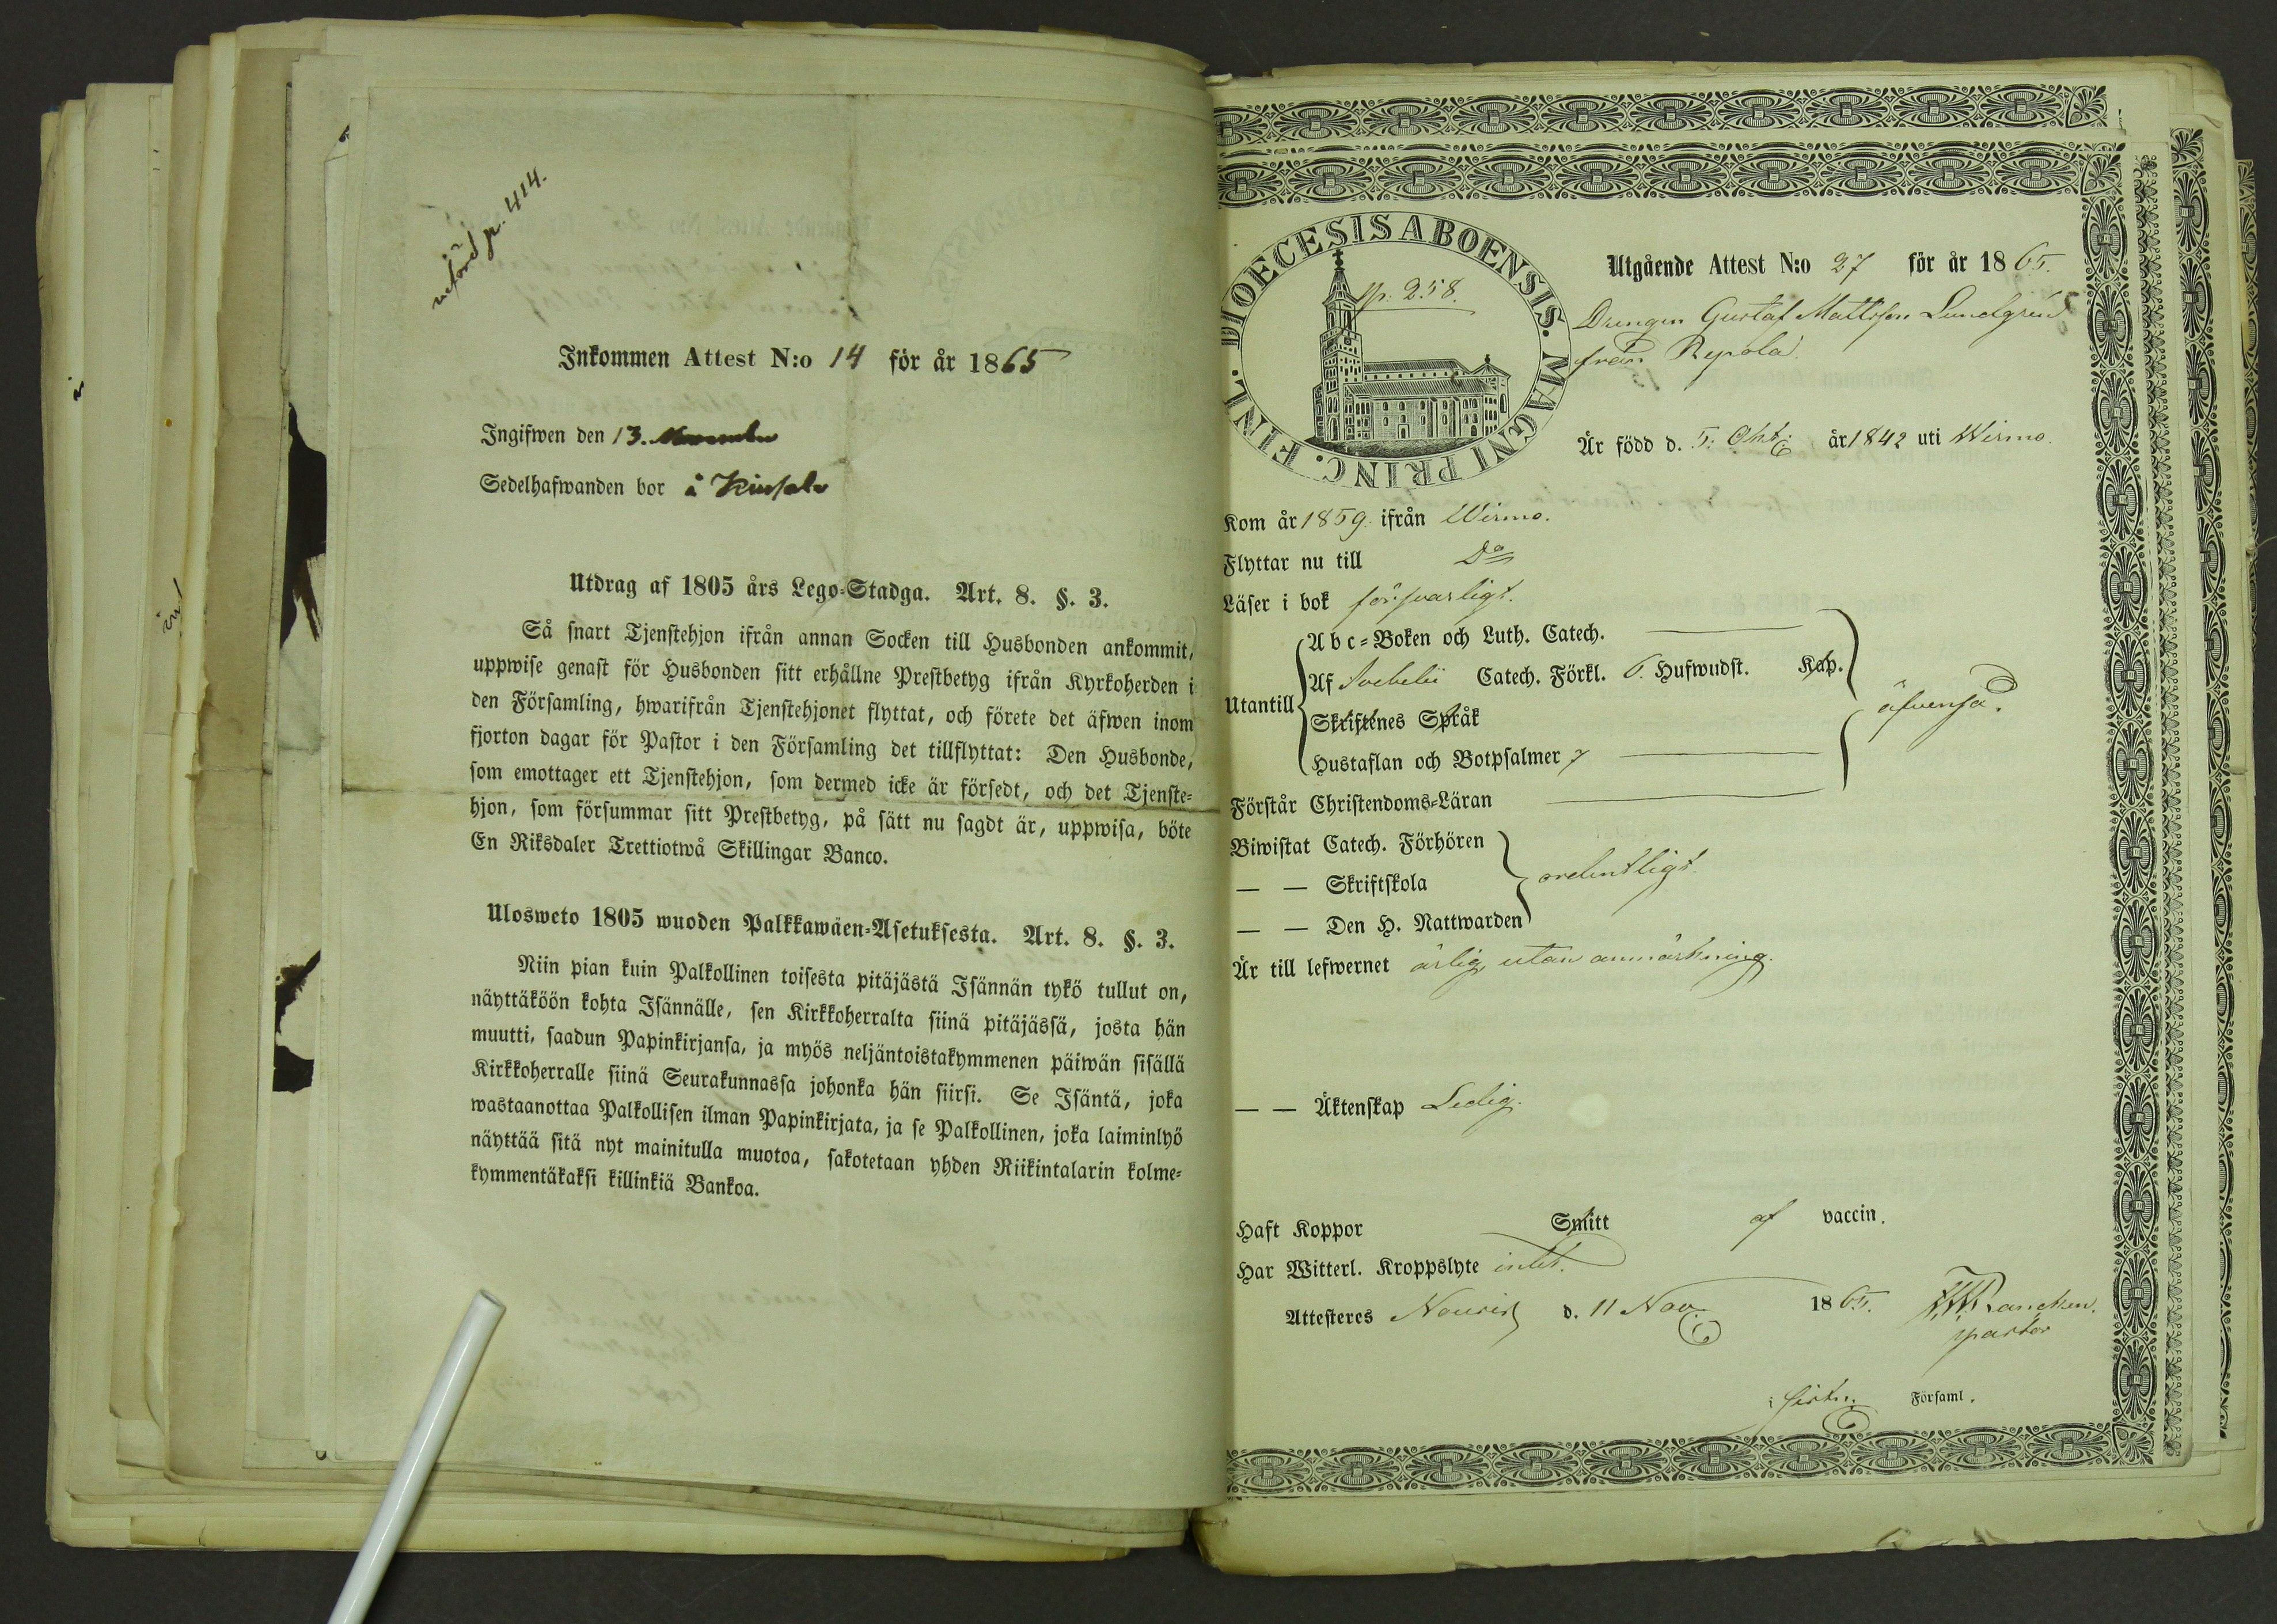 införd p. 414.
Inkommen Attest N:o 14 för år 1865
Ingifwen den 13. November
Sedelhafwanden bor å
Utdrag af 1805 års Lego-Stadga. Art. 8. §. 3.
Så snart Tjenstehjon ifrån annan Socken till Husbonden ankommit,
uppwise genast för Husbonden sitt erhållne Prestbetyg ifrån Kyrkoherden i
den Församling, hwarifrån Tjenstehjonet flyttat, och förete det äfwen inom
fjorton dagar för Pastor i den Församling det tillflyttat: Den Husbonde,
som emottager ett Tjenstehjon, som dermed icke är försedt, och det Tjenste-
hjon, som försummar sitt Prestbetyg, på sätt nu sagdt är, uppwisa, böte
En Riksdaler Trettiotwå Skillingar Banco.
Ulosweto 1805 wuoden Palkkawäen-Asetuksesta. Art. 8. §. 3.
Niin pian kuin Palkollinen toisesta pitäjästä Isännän tykö tullut on,
näyttäköön kohta Isännälle, sen Kirkkoherralta siinä pitäjässä, josta hän
muutti, saadun Papinkirjansa, ja myös neljäntoistakymmenen päiwän sisällä
Kirkkoherralle siinä Seurakunnassa johonka hän siirsi. Se Isäntä, joka
wastaanottaa Palkollisen ilman Papinkirjata, ja se Palkollinen, joka laiminlyö
näyttää sitä nyt mainitulla muotoa, sakotetaan yhden Riikintalarin kolme-
kymmentäkaksi killinkiä Bankoa.
DIOECESIS ABOENSIS. MAGNI PRINC. FINL.
p. 258.
Utgående Attest N:o 27 för år 1865.
Drengen Gustaf Mattsson Lundgren
från Repola.
Är född d. 5: Okt: år 1842 uti Wirmo.
Kom år 1859. ifrån Wirmo.
Flyttar nu till Do
Läser i bok försvarligt.
Utantill
Abc-Boken och Luth. Catech.
Af Svebelii Catech. Förkl. 6. Hufwudst. Kap.
Skriftenes Språk
Hustaflan och Botpsalmer 7
äfvenså.
Förstår Christendoms-Läran
Biwistat Catech. Förhören
— — Skriftskola
— — Den H. Nattwarden
ordentligt.
Är till lefwernet ärlig utan anmärkning.
— — Äktenskap Ledig.
Haft Koppor Smitt af vaccin.
Har Witterl. Kroppslyte intet.
Attesteres Nousis d. 11 Nov. 1865.
pastor
i Församl.